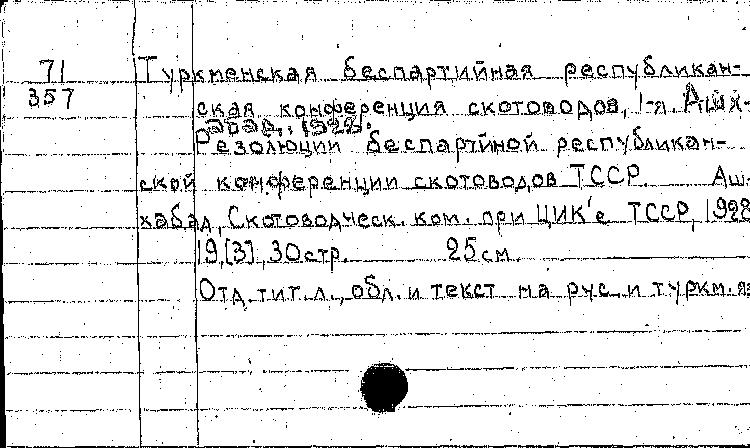 71
357
Туркменская беспартийная республикан-
ская конференция скотоводов, 1-я. Ашх-
абад, 1928.
Резолюции беспартйной республикан-
ской конференции скотоводов ТССР. Аш-
хабад, Скотоводческ. ком. при ЦИК'е ТССР, 1928
19,[3], 30 стр. 25 см.
Отд. тит. л., обл. и текст на рус. и туркм. яз